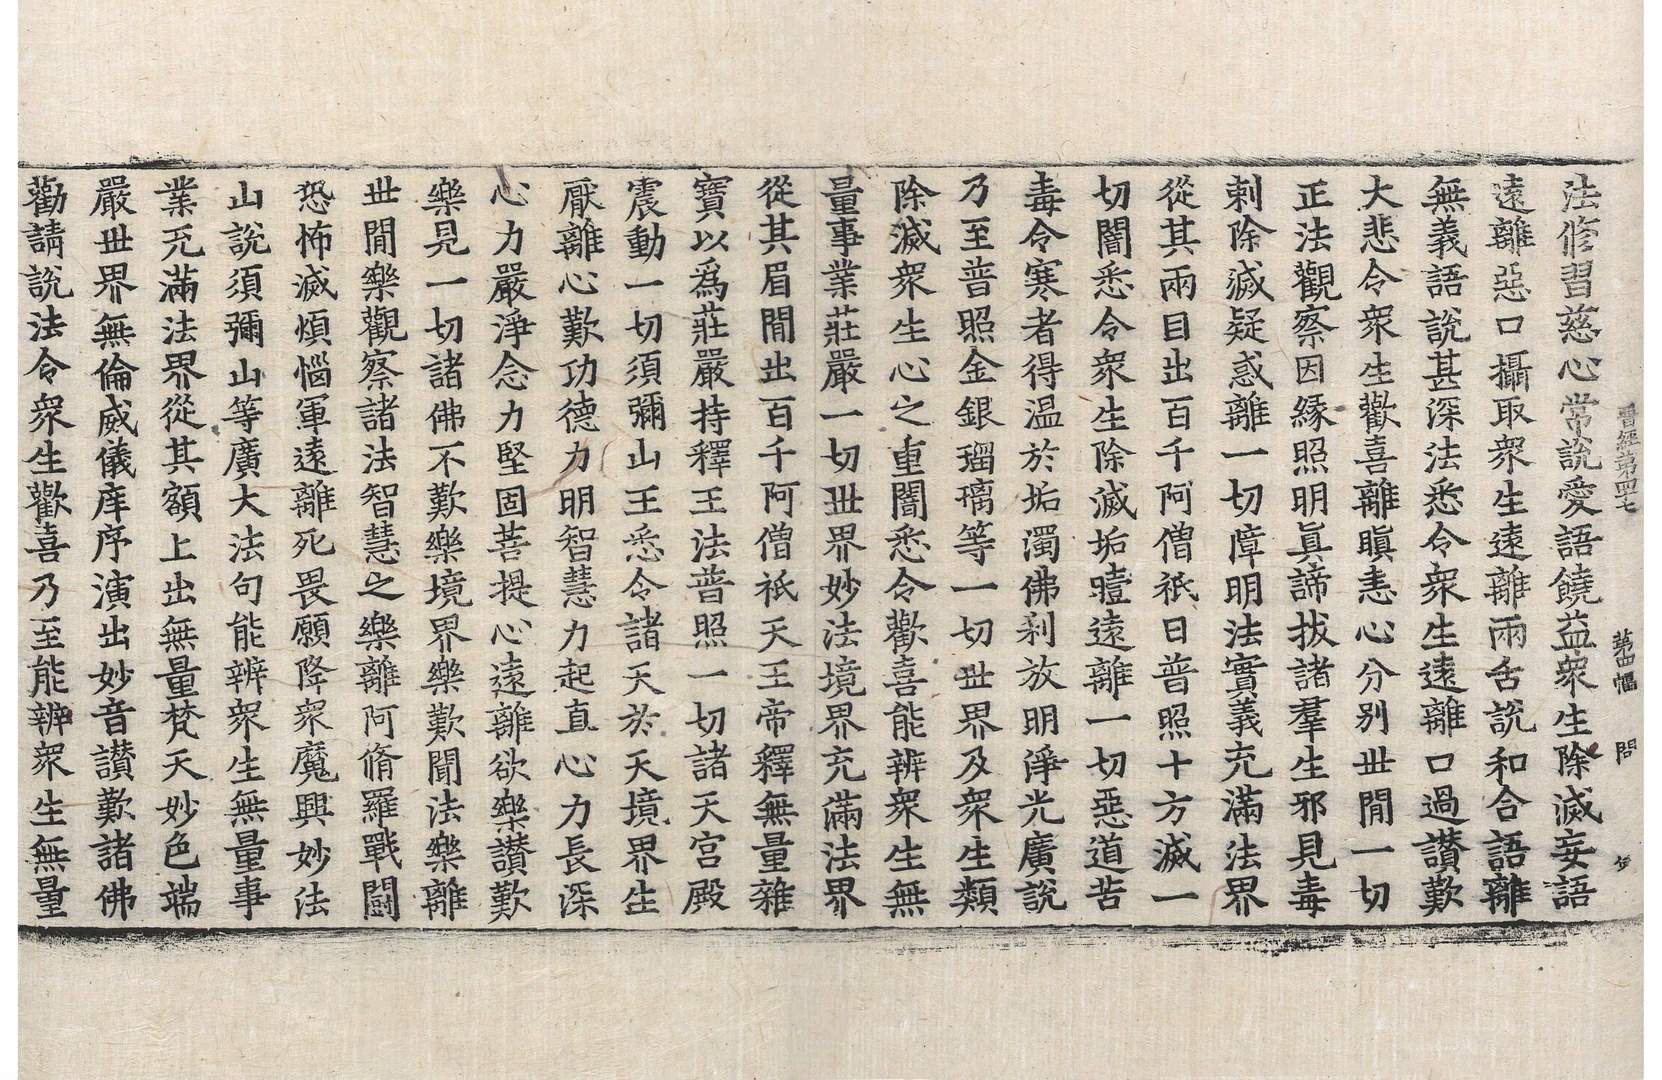 晉經第四七 第四幅 問 夕
法脩習慈心常說愛語饒益衆生除滅妄語
遠離惡口攝取衆生遠離兩舌說和合語離
無義語說甚深法悉令衆生遠離口過讃歎
大悲令衆生歡喜離瞋恚心分別世閒一切
正法觀察因緣照明眞諦拔諸羣生邪見毒
刺除滅疑惑離一切障明法實義充滿法界
從其兩目出百千阿僧祇日普照十方滅一
切闇悉令衆生除滅垢曀遠離一切惡道苦
毒令寒者得温於垢濁佛刹放明淨光廣說
乃至普照金銀瑠璃等一切世界及衆生類
除滅衆生心之重闇悉令歡喜能辨衆生無
量事業莊嚴一切世界妙法境界充滿法界
從其眉閒出百千阿僧祇天王帝釋無量雜
寶以爲莊嚴持釋王法普照一切諸天宮殿
震動一切須彌山王悉令諸天於天境界生
厭離心歎功德力明智慧力起直心力長深
心力嚴淨念力堅固菩提心遠離欲樂讃歎
樂見一切諸佛不歎樂境界樂歎聞法樂離
世閒樂觀察諸法智慧之樂離阿脩羅戰鬪
恐怖滅煩惱軍遠離死畏願降衆魔興妙法
山說須彌山等廣大法句能辨衆生無量事
業充滿法界從其額上出無量梵天妙色端
嚴世界無倫威儀庠序演出妙音讃歎諸佛
勸請說法令衆生歡喜乃至能辨衆生無量